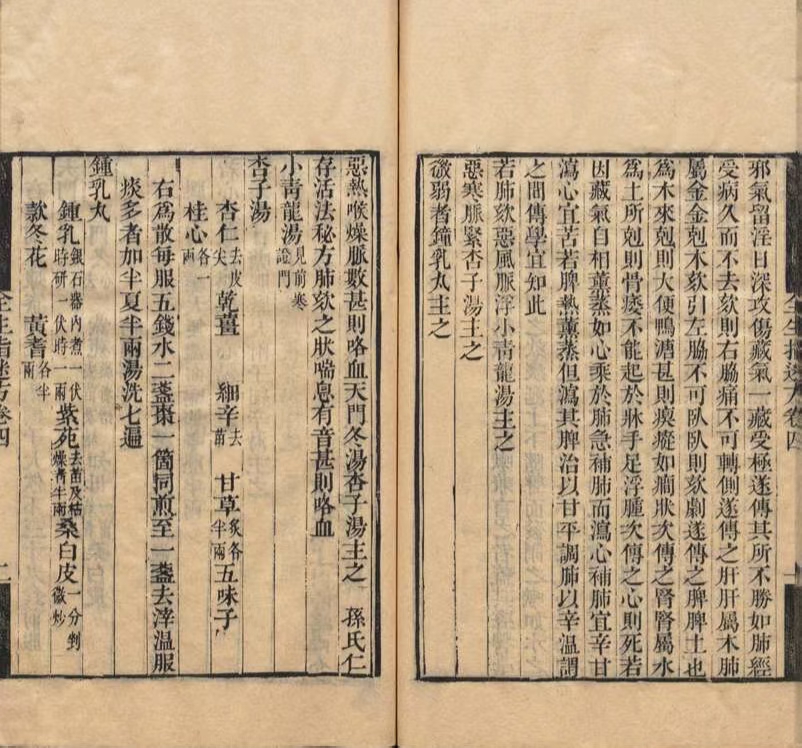 邪氣留淫日深攻傷藏氣一藏受極遂傳其所不勝如肺經
受病久而不去欬則右脇痛不可轉側遂傳之肝肝屬木肺
屬金金剋木欬引左脇不可臥臥則欬劇遂傳之脾脾土也
為木來剋則大便鴨溏甚則瘈瘲如癇狀次傳之腎腎屬水
爲土所剋則骨痿不能起於牀手足浮腫次傳之心則死若
因藏氣自相薰蒸如心乘於肺急補肺而瀉心補肺宜辛甘
瀉心宜苦若脾熱薰蒸但瀉其脾治以甘平調肺以辛溫謂
之間傳學宜知此
若肺欬惡風脈浮小靑龍湯主之
惡寒脈緊杏子湯主之
微弱者鐘乳丸主之
全生指迷方卷四
惡熱喉燥脈數甚則咯血天門冬湯杏子湯主之 孫氏仁
存活法秘方肺欬之狀喘息有音甚則咯血
小靑龍湯見前寒證門
杏子湯
杏仁去皮尖 乾薑 細辛去苗 甘草炙各半兩 五味子
桂心各一兩
右爲散每服五錢水二盞棗一箇同煎至一盞去滓温服
痰多者加半夏半兩湯洗七遍
鍾乳丸
鍾乳銀石器内煮一伏時研一伏時一兩 紫苑去苗及枯燥者半兩 桑白皮一分剉微炒
款冬花 黃耆各半兩
全生指迷方卷四
二